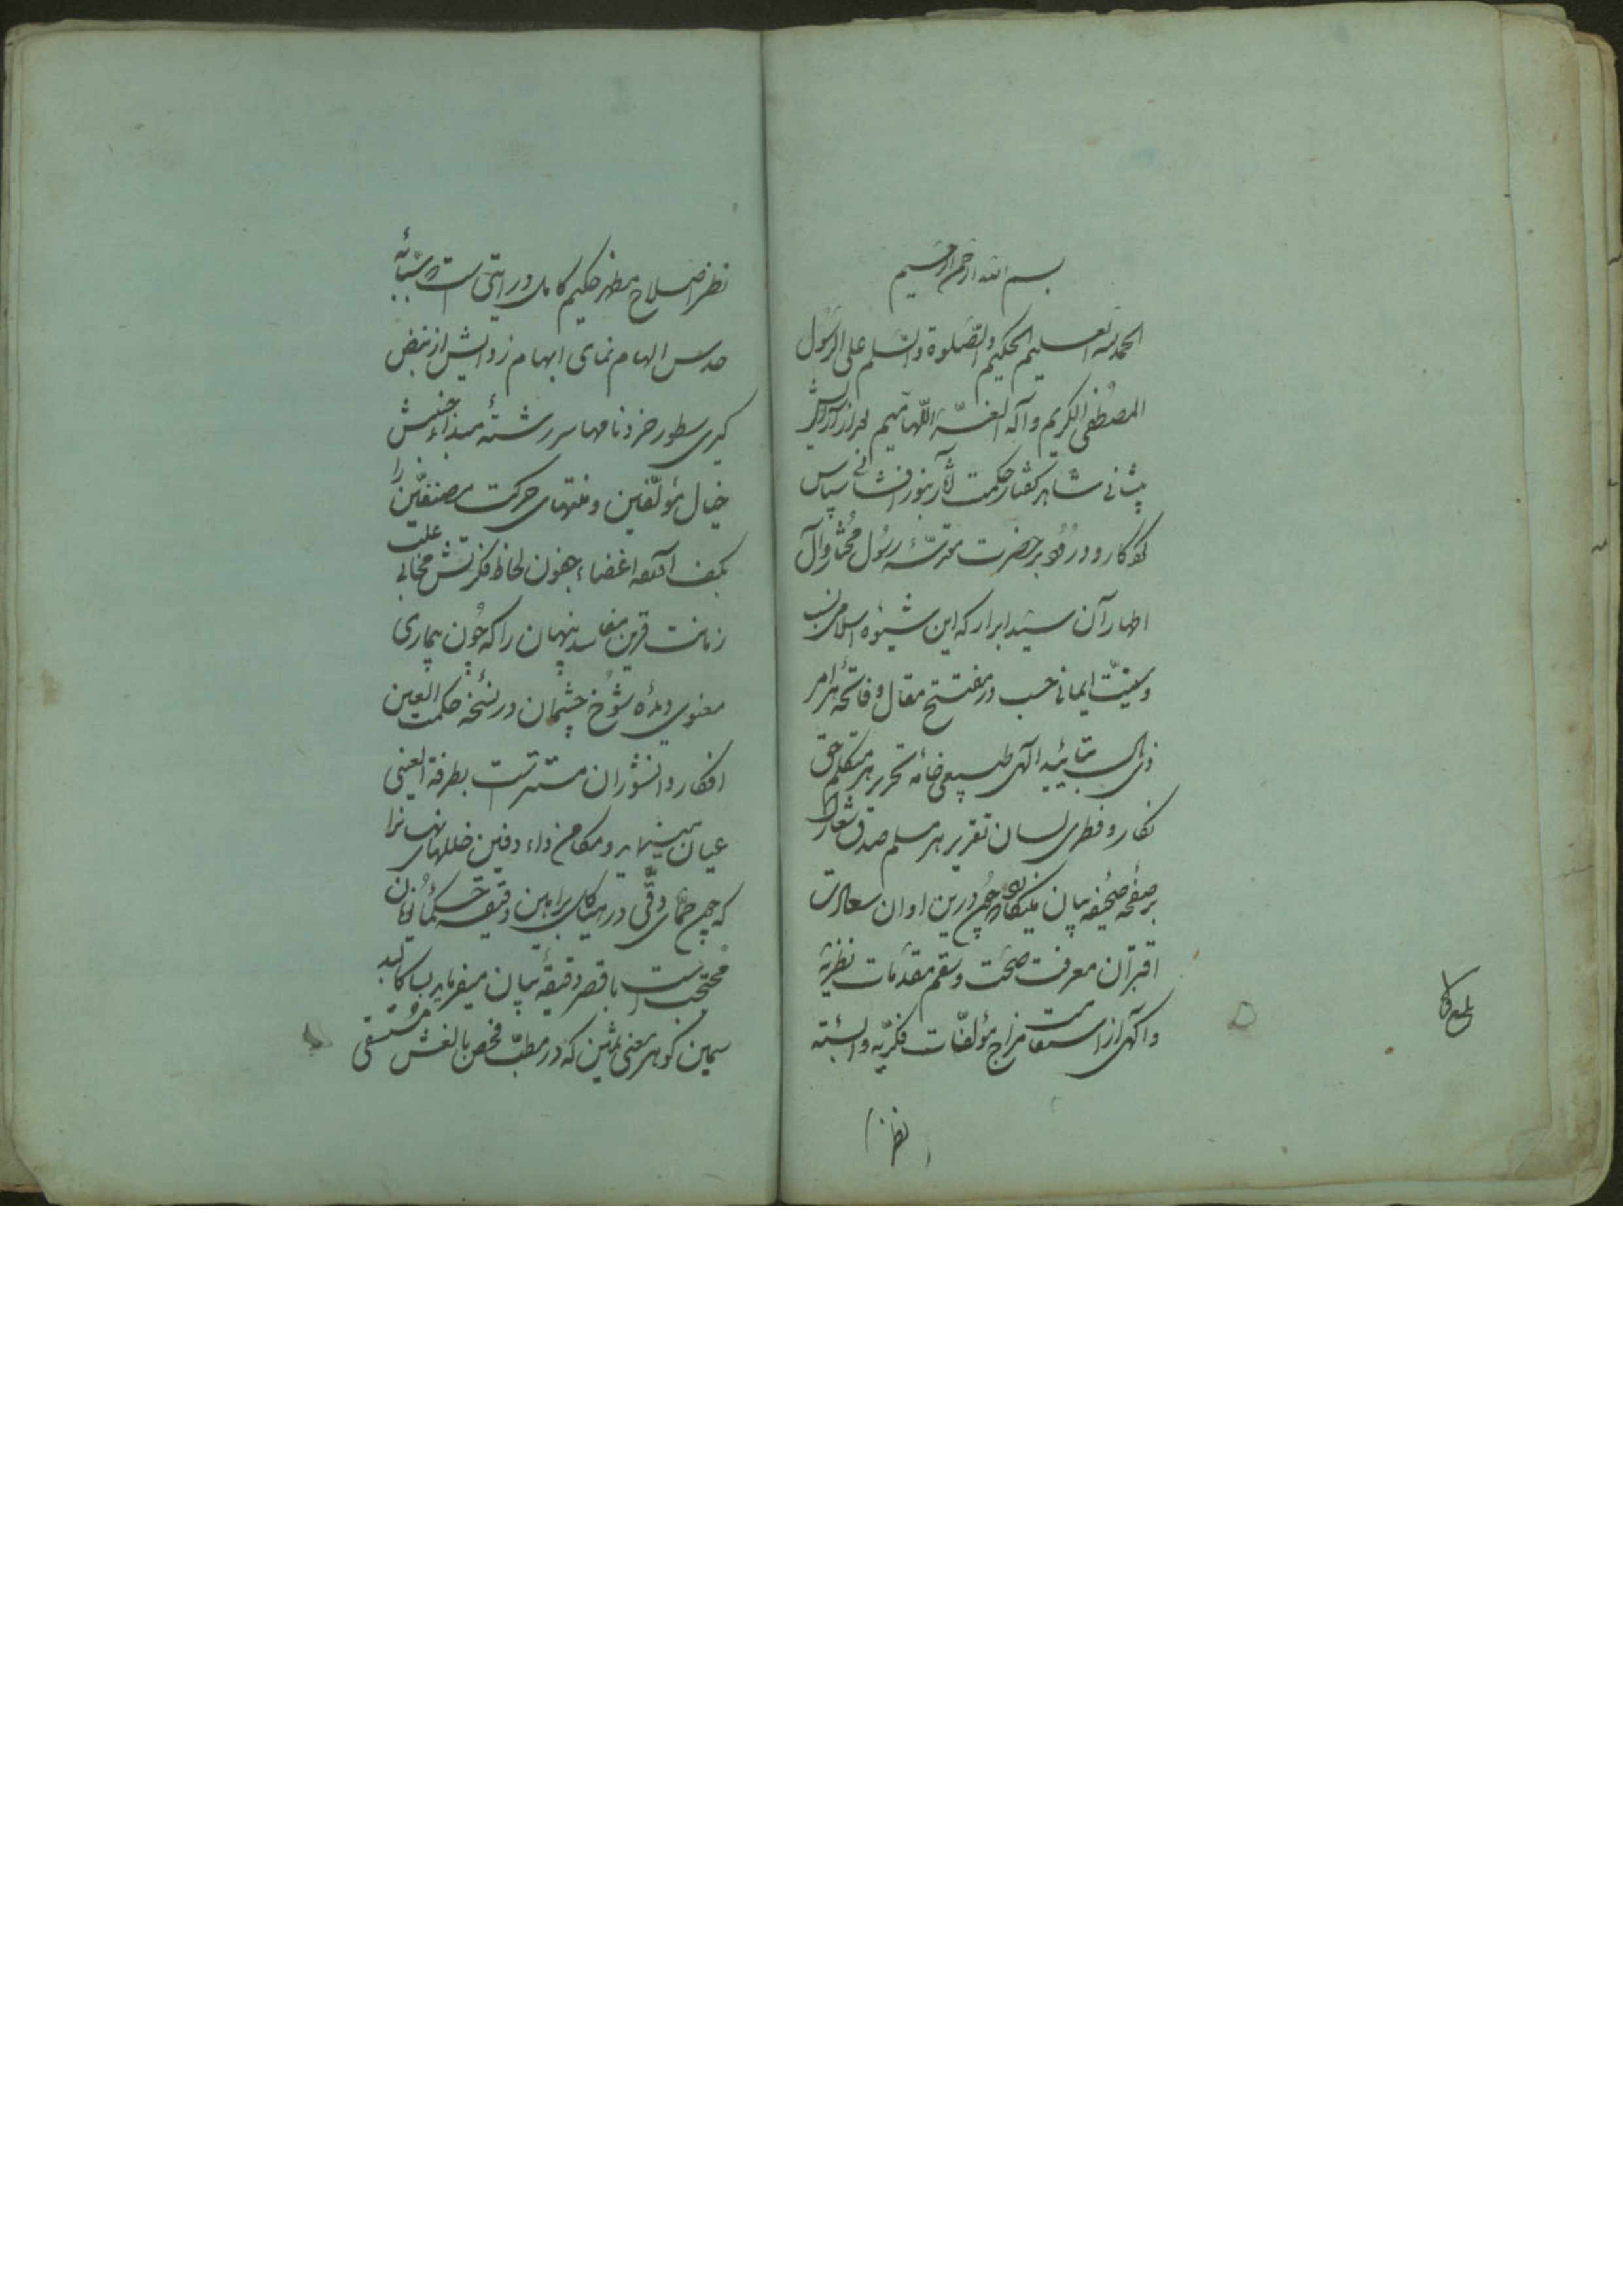 بسم الله الرحمن الرحیم
الحمدلله العلیم الحکیم والصّلوة والسّلم علی الرسُول
المصُطفی الکریم وآله الغرّ اللّهامیم
پیشانی شاهد کفتار حکمت آثار بنور افشانی سپاس
کردکار و درُود بر حضرت رسُول مُختار و آل
اطهار آن سیّد ابرار که این شیوه اسلامی نسب
و سنّت ایمانی حسب در مفتتح مقال و فاتحهٔ هر امر
ذی بال بتائید الهی طبیعی خامه تحریر هر متکلّم حق
نکار و فطری لسان تقریر هر مسلم صدق شعار
بر صفحه صحُیفه بیان چون درین اوان سعادت
اقتران معرفت صحّت و سقم مقدّمات نظریّه
و آکهی از استقامت مزاج مؤلفات فکریّه وابسته
نظر
نظر اصلاح مطهر حکیم کامل درایتی است که سبّابهٔ
حدس الهام نمای ابهام زدایش از نبض
کیری سطور خرد نامها سر رشتهٔ مبداء جنبش
خیال مؤلّفین و منتهای حرکت مصنفین را
بکف آرد اغضاء جفون لحاظ فکرتش مخایل علت
زمانت قرین مفاسد پنهان را که چُون بیماری
معنوی دیدهٔ شوُخ چشمان در نسُخه حکمت العین
افکار دانشوران مستتر است بطرفة العینی
عیان می‌بیند و مکامن داء دفین خللهای نهانرا
که چون حمّای دقّی در هیاکل براهین دقیقه حکماُ یونان
مُحتجب است با قصر دقیقهٔ بیان میفرماید بسا کالبد
سیمین کوهر معنی ثمین که در مطبّ فحص بالغش مُستسقی